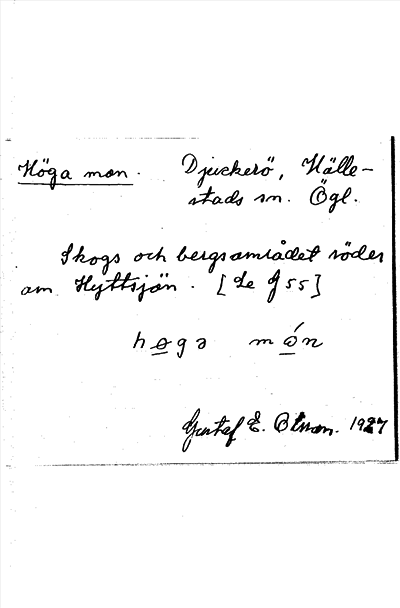 Höga mon. Djuckerö, Hälle-
stads sn. Ögl.
Skogs och bergsområdet söder
om Hyttsjön. [Se J 55]
høga món
Gustaf E. Olsson. 1927